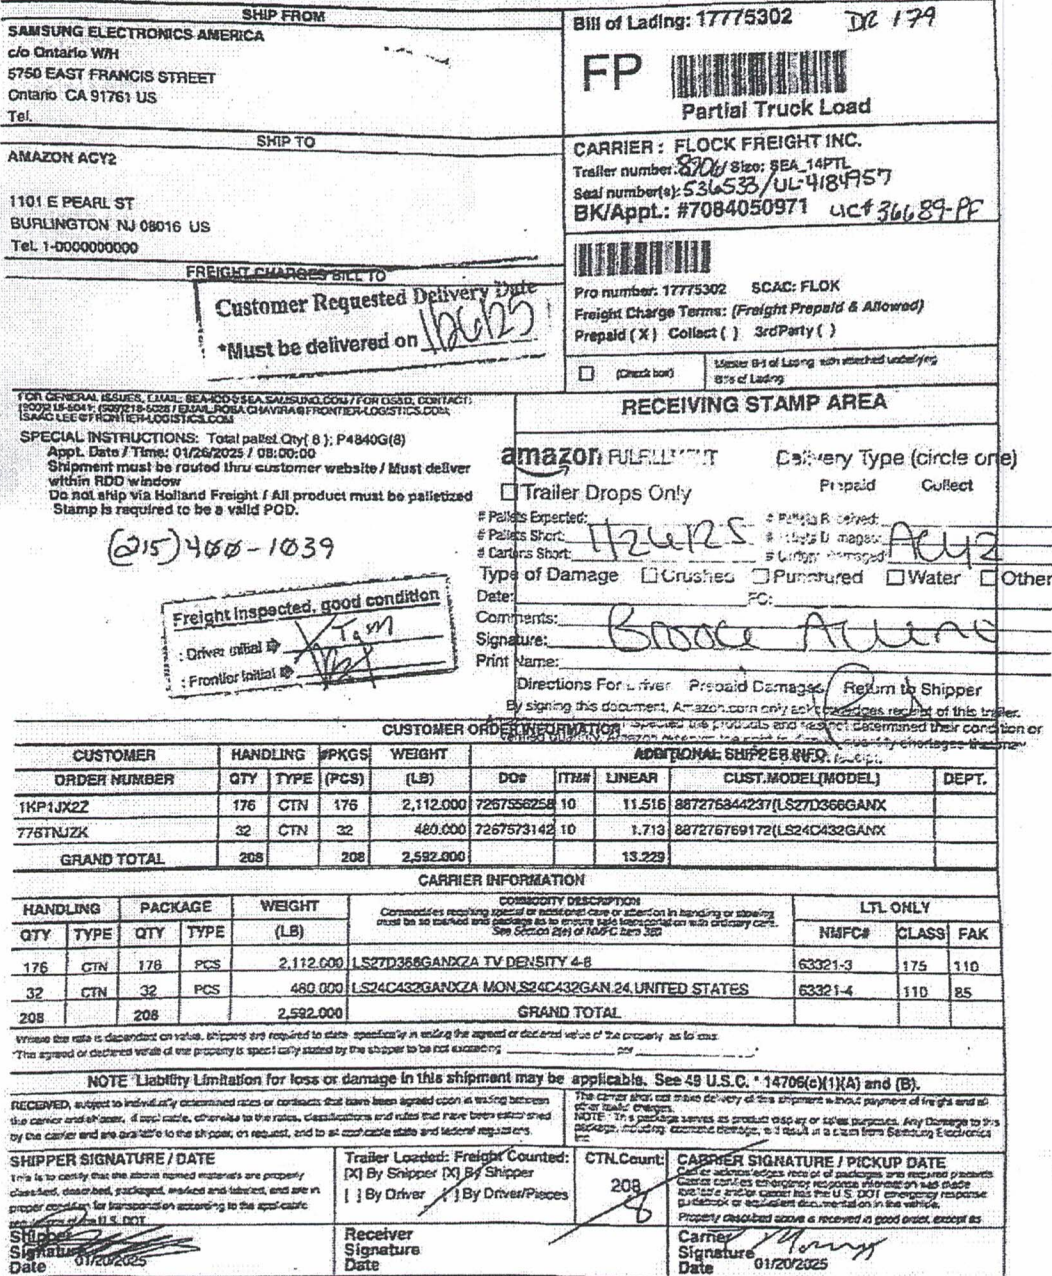 SHIP FROM
SAMSUNG ELECTRONICS AMERICA
c/o Ontario W/H
5750 EAST FRANCIS STREET
Ontario CA 91761 US
Tel.
Bill of Lading: 17775302 DR 179
FP
Partial Truck Load
SHIP TO
AMAZON ACY2
1101 E PEARL ST
BURLINGTON NJ 08016 US
Tel. 1-0000000000
CARRIER : FLOCK FREIGHT INC.
Trailer number: Size: SEA_14PTL
Seal number(s): 536533/UL-4184957
BK/Appt.: #7084050971 UC# 36689-PF
FREIGHT CHARGES BILL TO
Customer Requested Delivery Date
*Must be delivered on 1/26/25
Pro number: 17775302 SCAC: FLOK
Freight Charge Terms: (Freight Prepaid & Allowed)
Prepaid ( X ) Collect ( ) 3rdParty ( )
(Check box) Master Bill of Lading with attached underlying Bills of Lading
FOR GENERAL ISSUES, EMAIL: FOR OS&D, CONTACT:
SPECIAL INSTRUCTIONS: Total pallet Qty( 8 ); P4840G(8)
Appt. Date / Time: 01/26/2025 / 08:00:00
Shipment must be routed thru customer website / Must deliver
within RDD window
Do not ship via Holland Freight / All product must be palletized
Stamp is required to be a valid POD.
(215) 400-1039
Freight Inspected, good condition
: Driver Initial
: Frontier Initial
RECEIVING STAMP AREA
amazon FULFILLMENT Delivery Type (circle one)
Trailer Drops Only Prepaid Collect
# Pallets Expected: # Pallets Received:
# Pallets Short: 1/26/25 # Pallets Damaged: ACY2
# Cartons Short: # Cartons Damaged:
Type of Damage Crushed Punctured Water Other
Date: FC:
Comments:
Signature:
Print Name:
Directions For Driver Prepaid Damages Return to Shipper
By signing this document, Amazon.com only acknowledges receipt of this trailer.
CUSTOMER ORDER INFORMATION
CUSTOMER HANDLING #PKGS WEIGHT ADDITIONAL SHIPPER INFO.
ORDER NUMBER QTY TYPE (PCS) (LB) DO# ITM# LINEAR CUST.MODEL(MODEL) DEPT.
1KP1JX2Z 176 CTN 176 2,112.000 7267556258 10 11.516 887276844237(LS27D366GANX
776TNJZK 32 CTN 32 480.000 7267573142 10 1.713 887276769172(LS24C432GANX
GRAND TOTAL 208 208 2,592.000 13.229
CARRIER INFORMATION
HANDLING PACKAGE WEIGHT COMMODITY DESCRIPTION LTL ONLY
Commodities requiring special or additional care or attention in handling or stowing
must be so marked and package as to ensure safe transportation with ordinary care.
See Section 2(e) of NMFC Item 360
QTY TYPE QTY TYPE (LB) NMFC# CLASS FAK
176 CTN 176 PCS 2,112.000 LS27D366GANXZA TV DENSITY 4-6 63321-3 175 110
32 CTN 32 PCS 480.000 LS24C432GANXZA MON,S24C432GAN,24,UNITED STATES 63321-4 110 85
208 208 2,592.000 GRAND TOTAL
Where the rate is dependant on value, shippers are required to state specifically in writing the agreed or declared value of the property as follows:
"The agreed or declared value of the property is specifically stated by the shipper to be not exceeding per
NOTE "Liability Limitation for loss or damage in this shipment may be applicable. See 49 U.S.C. " 14706(c)(1)(A) and (B).
RECEIVED, subject to individually determined rates or contracts that have been agreed upon in writing between
the carrier and shipper, if applicable, otherwise to the rates, classifications and rules that have been established
by the carrier and are available to the shipper, on request, and to all applicable state and federal regulations.
The carrier shall not make delivery of this shipment without payment of freight and all
other lawful charges.
NOTE : This package serves as product display or sales purposes. Any Damage to this
package, including cosmetic damage, will result in a claim from Samsung Electronics
SHIPPER SIGNATURE / DATE
This is to certify that the above named materials are properly
classified, described, packaged, marked and labeled, and are in
proper condition for transportation according to the applicable
regulations of the U.S. DOT
Shipper
Signature
Date 01/20/2025
Trailer Loaded: Freight Counted:
[X] By Shipper [X] By Shipper
[ ] By Driver [ ] By Driver/Pieces
Receiver
Signature
Date
CTN.Count:
208
8
CARRIER SIGNATURE / PICKUP DATE
Carrier acknowledges receipt of packages and required placards
Carrier certifies emergency response information was made
available and/or carrier has the U.S. DOT emergency response
guidebook or equivalent documentation in the vehicle.
Property described above is received in good order, except as
Carrier
Signature
Date 01/20/2025